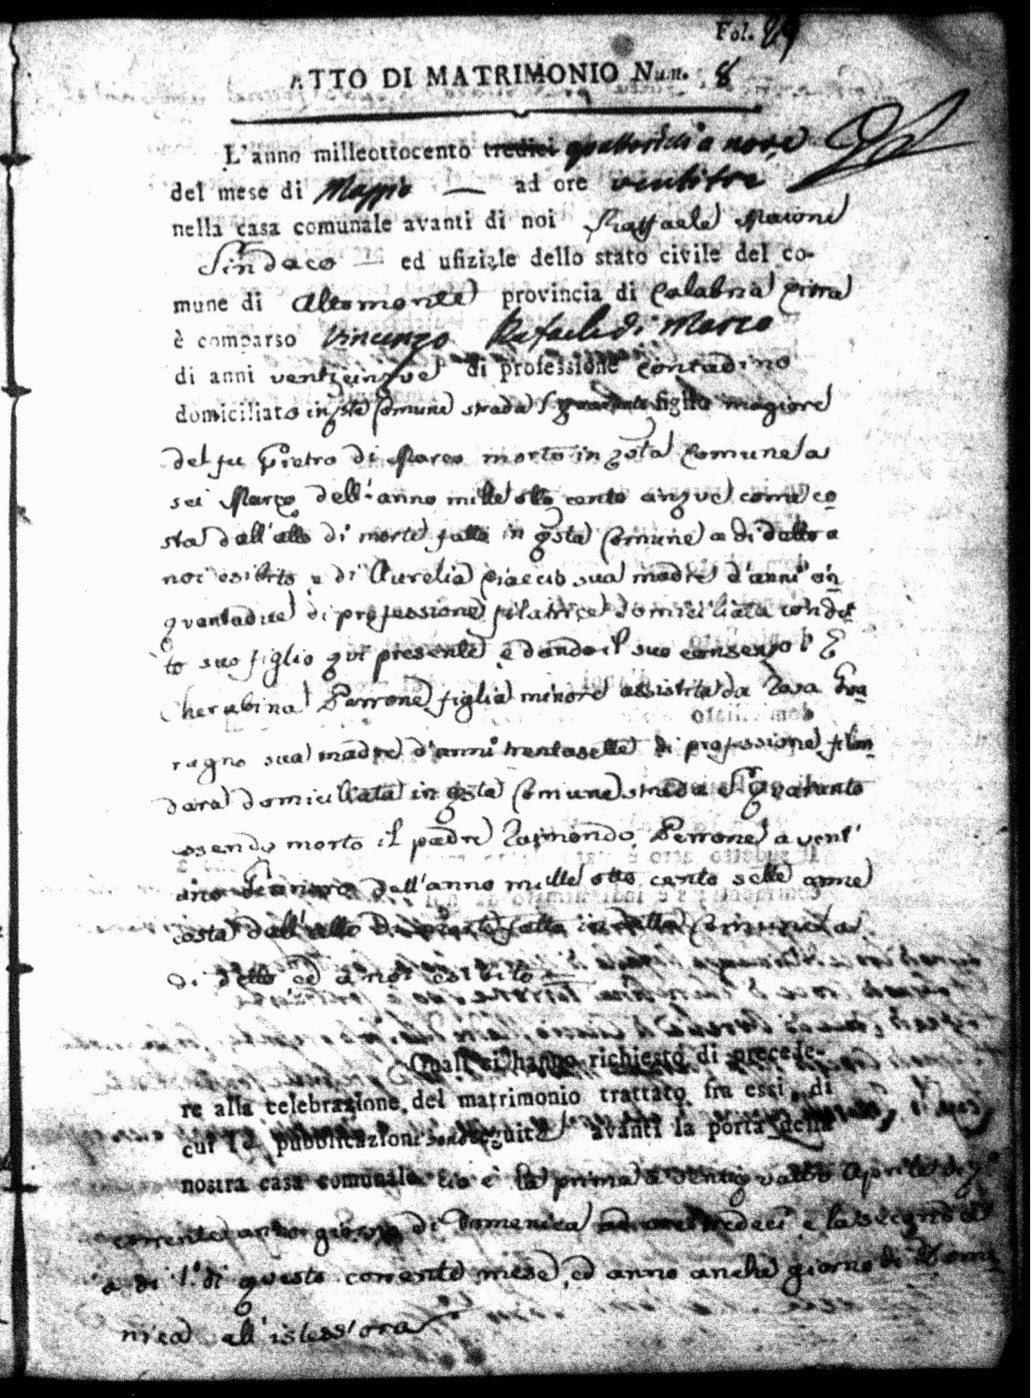 Fol. 29
ATTO DI MATRIMONIO Num. 8
L'anno milleottocento tredici quattordici a nove
del mese di Maggio — ad ore ventitre
nella casa comunale avanti di noi Raffaele Maioni
Sindaco — ed ufiziale dello stato civile del co-
mune di Altomonte provincia di Calabria Citra
è comparso Vincenzo Rafaele di Marco
di anni venticinque di professione contadino
domiciliato in qsta Comune strada figlio magiore
del fu Pietro di Marco morto in qsta Comune a
sei Marzo dell'anno mille otto cento cinque come co
sta dall'atto di morte fatto in qsta Comune a di detto a
noi esibito e di Aurelia sua madre d'anni cin
quantadue di professione filatrice domiciliata con det
to suo figlio qui presente, e dando il suo consenso
Cherubina Perrone figlia minore assistita da Rosa
ragno sua madre d'anni trentasette di professione filan
dara domiciliata in qsta Comune strada
essendo morto il padre Raimondo Perrone a vent'
uno Gennaro dell'anno mille otto cento sette come
costa dall'atto di morte fatto in detta Comune a
di detto ed a noi esibito —
Quali ci hanno richiesto di precede-
re alla celebrazione del matrimonio trattato fra essi, di
cui le pubblicazioni sono seguite avanti la porta della
nostra casa comunale cio è la prima a ventiquattro Aprile di qo
corrente anno giorno di Domenica ad ore sedeci e la seconda
a di 1.° di questo corrente mese, ed anno anche giorno di Dome
nica all'istess'ora